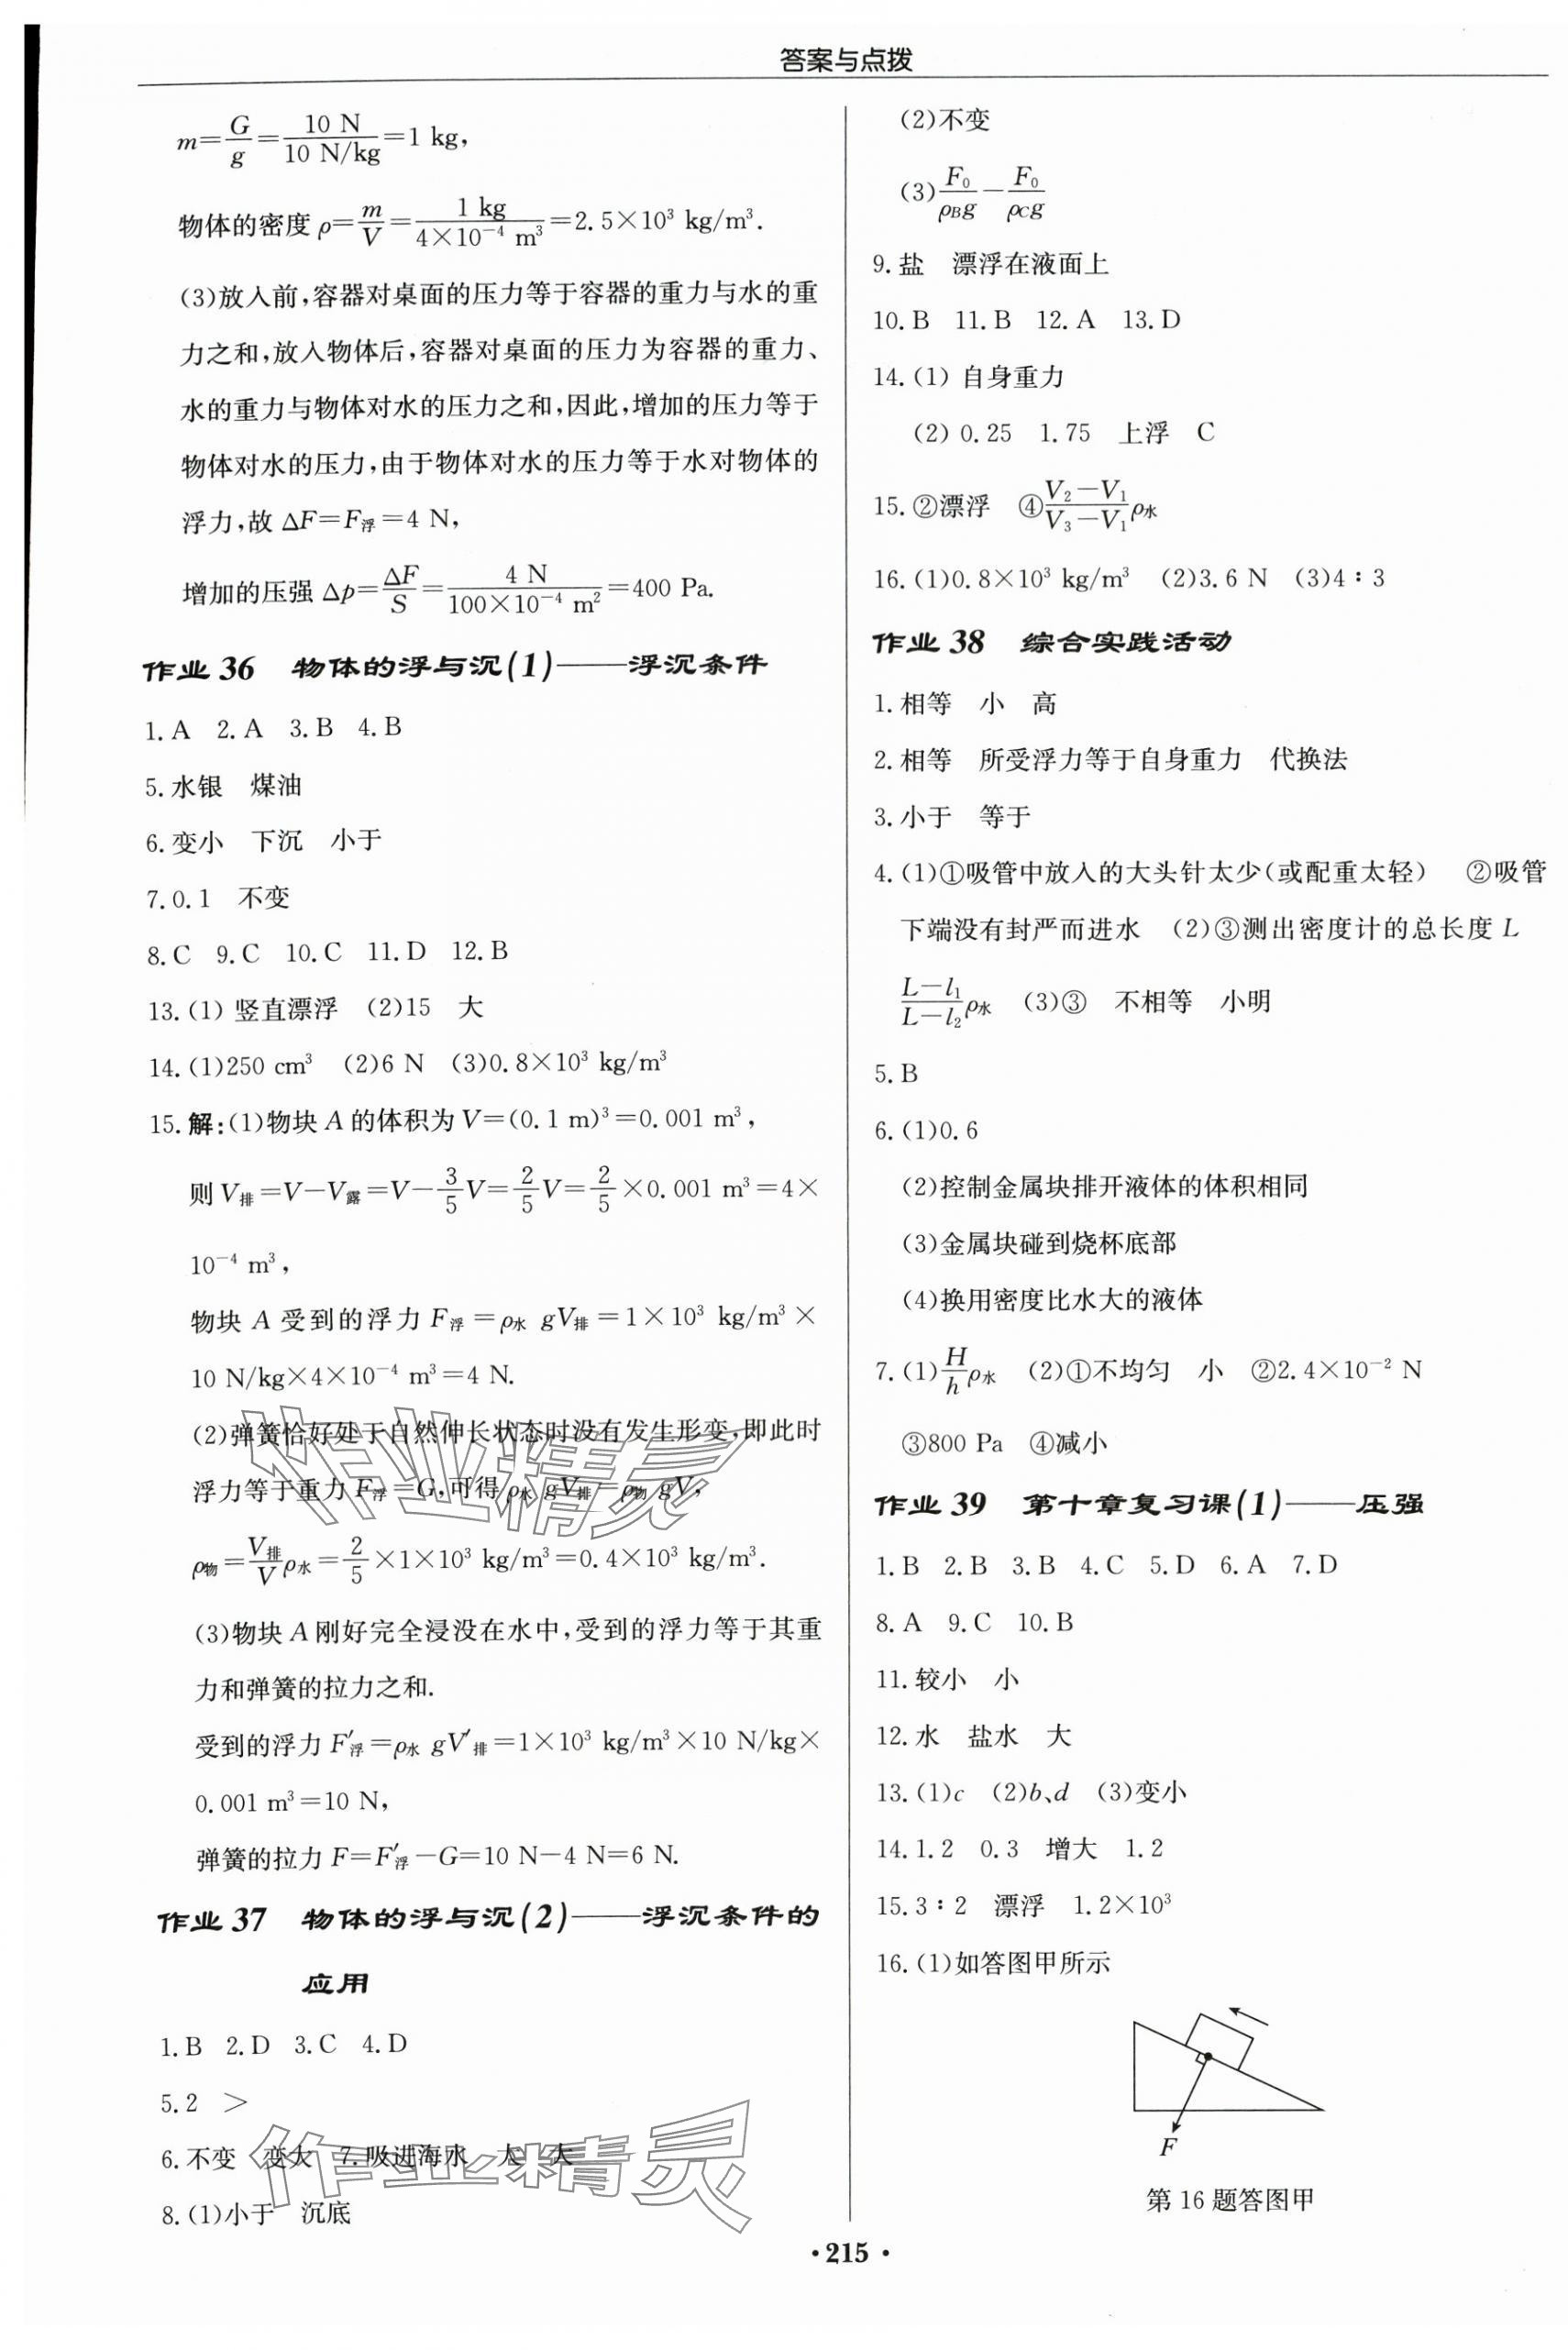 答案与点拨
m=G/g=10 N/10 N/kg=1 kg,
物体的密度 ρ=m/V=1 kg/4×10⁻⁴ m³=2.5×10³ kg/m³.
(3)放入前,容器对桌面的压力等于容器的重力与水的重
力之和,放入物体后,容器对桌面的压力为容器的重力、
水的重力与物体对水的压力之和,因此,增加的压力等于
物体对水的压力,由于物体对水的压力等于水对物体的
浮力,故 ΔF=F浮=4 N,
增加的压强 Δp=ΔF/S=4 N/100×10⁻⁴ m²=400 Pa.
作业 36 物体的浮与沉(1)——浮沉条件
1.A 2.A 3.B 4.B
5.水银 煤油
6.变小 下沉 小于
7.0.1 不变
8.C 9.C 10.C 11.D 12.B
13.(1) 竖直漂浮 (2)15 大
14.(1)250 cm³ (2)6 N (3)0.8×10³ kg/m³
15.解:(1)物块 A 的体积为 V=(0.1 m)³=0.001 m³,
则 V排=V-V露=V-3/5V=2/5V=2/5×0.001 m³=4×
10⁻⁴ m³,
物块 A 受到的浮力 F浮=ρ水 gV排=1×10³ kg/m³×
10 N/kg×4×10⁻⁴ m³=4 N.
(2)弹簧恰好处于自然伸长状态时没有发生形变,即此时
浮力等于重力 F浮=G,可得 ρ水 gV排=ρ物 gV,
ρ物=V排/Vρ水=2/5×1×10³ kg/m³=0.4×10³ kg/m³.
(3)物块 A 刚好完全浸没在水中,受到的浮力等于其重
力和弹簧的拉力之和.
受到的浮力 F′浮=ρ水 gV′排=1×10³ kg/m³×10 N/kg×
0.001 m³=10 N,
弹簧的拉力 F=F′浮-G=10 N-4 N=6 N.
作业 37 物体的浮与沉(2)——浮沉条件的
应用
1.B 2.D 3.C 4.D
5.2 >
6.不变 变大 7.吸进海水 大 大
8.(1)小于 沉底
(2)不变
(3)F₀/ρBg-F₀/ρCg
9.盐 漂浮在液面上
10.B 11.B 12.A 13.D
14.(1) 自身重力
(2) 0.25 1.75 上浮 C
15.②漂浮 ④V₂-V₁/V₃-V₁ρ水
16.(1)0.8×10³ kg/m³ (2)3.6 N (3)4∶3
作业 38 综合实践活动
1.相等 小 高
2.相等 所受浮力等于自身重力 代换法
3.小于 等于
4.(1)①吸管中放入的大头针太少(或配重太轻) ②吸管
下端没有封严而进水 (2)③测出密度计的总长度 L
L-l₁/L-l₂ρ水 (3)③ 不相等 小明
5.B
6.(1)0.6
(2)控制金属块排开液体的体积相同
(3)金属块碰到烧杯底部
(4)换用密度比水大的液体
7.(1)H/hρ水 (2)①不均匀 小 ②2.4×10⁻² N
③800 Pa ④减小
作业 39 第十章复习课(1)——压强
1.B 2.B 3.B 4.C 5.D 6.A 7.D
8.A 9.C 10.B
11.较小 小
12.水 盐水 大
13.(1)c (2)b、d (3)变小
14.1.2 0.3 增大 1.2
15.3∶2 漂浮 1.2×10³
16.(1)如答图甲所示
F
第 16 题答图甲
作业精灵
作业精灵
• 215 •